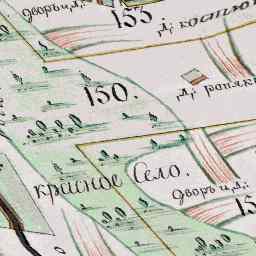 Дворъ и, Д:
155
Д: костью
150.
Д: ропяк
красное Село.
Дворъ и, Д:
15